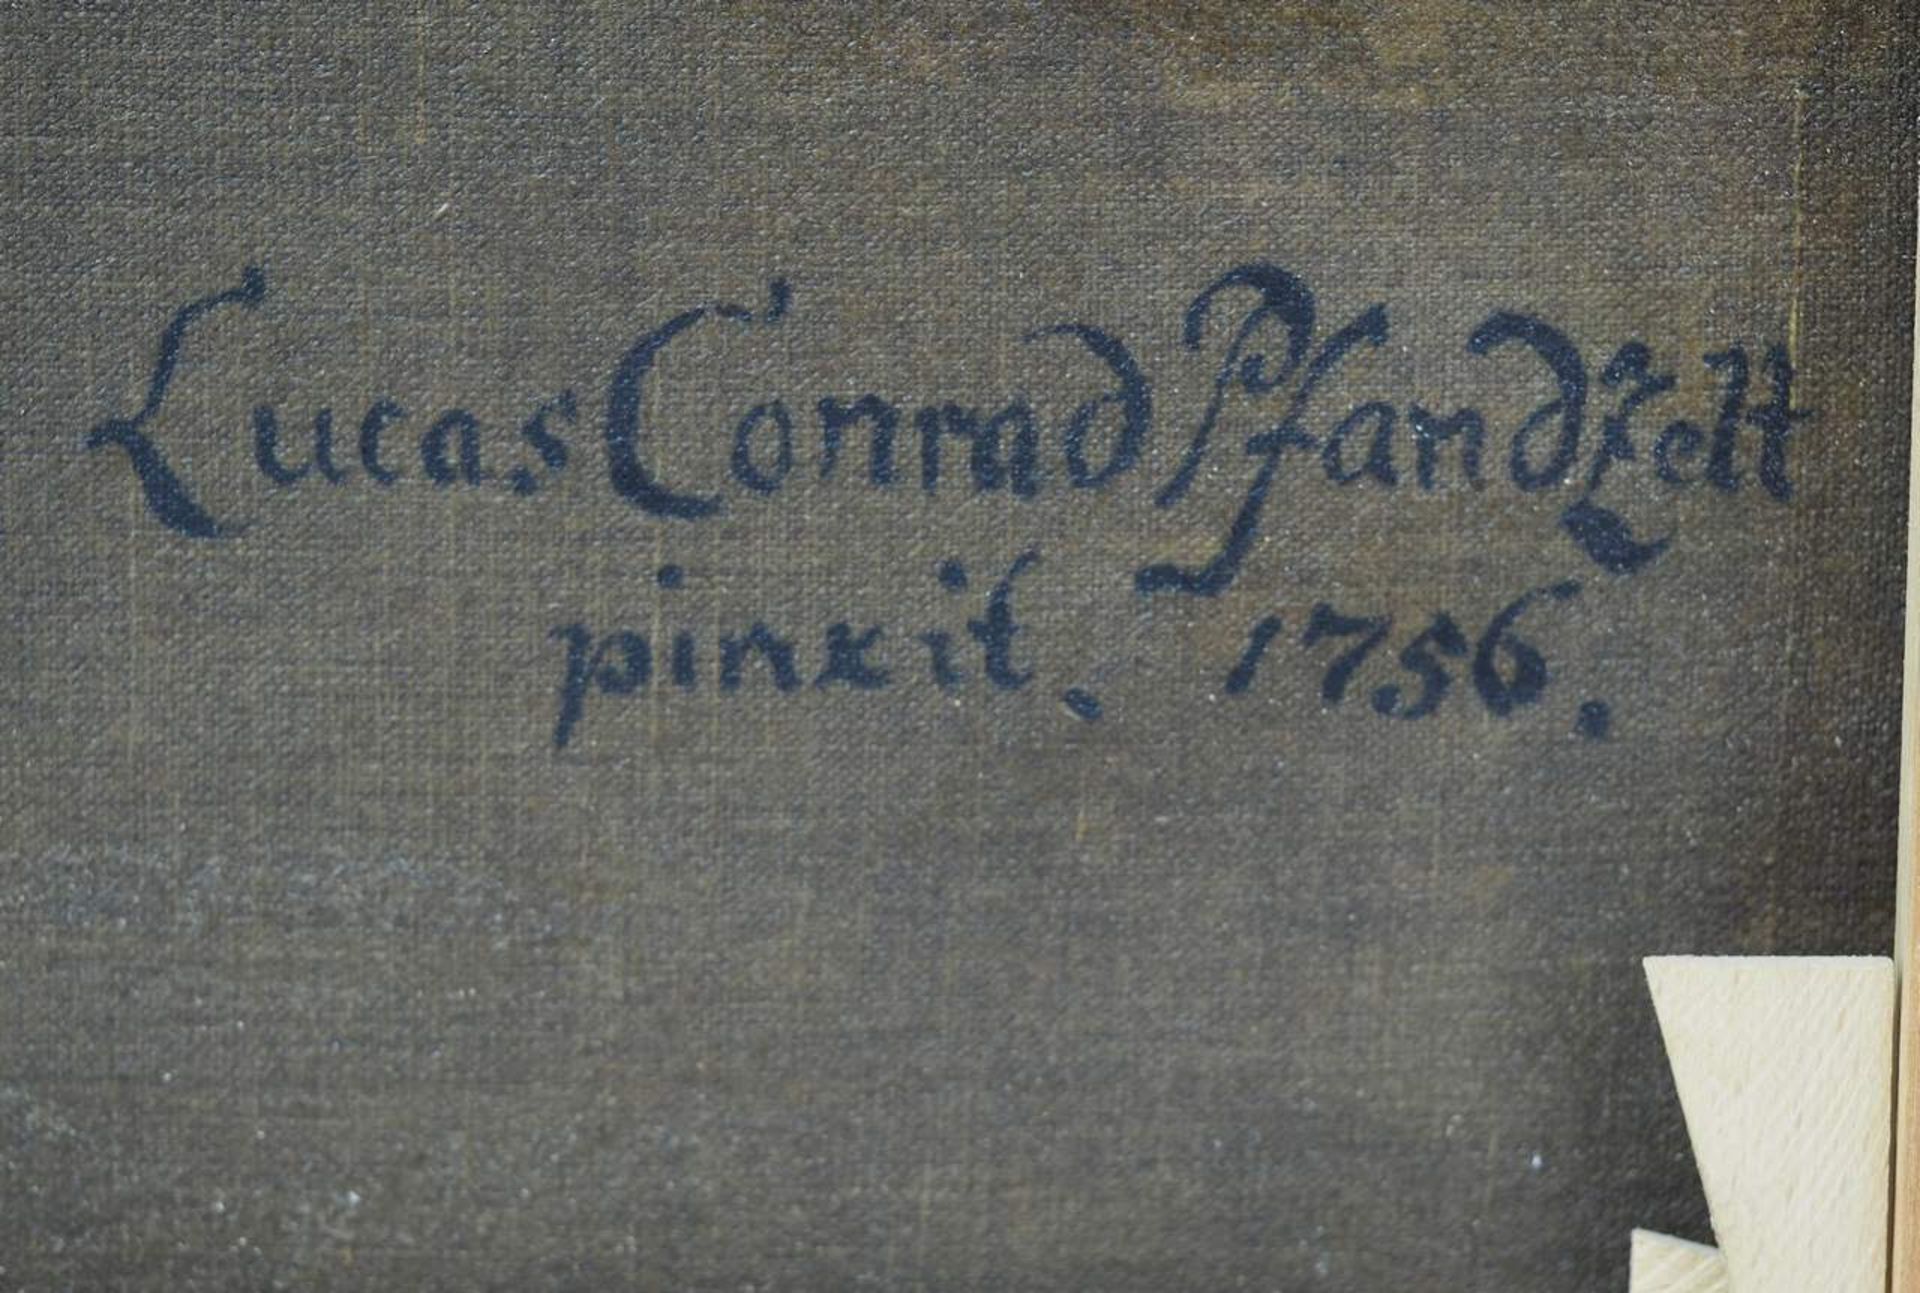 Lucas Conrad Pfandzelt
pinxit. 1756.